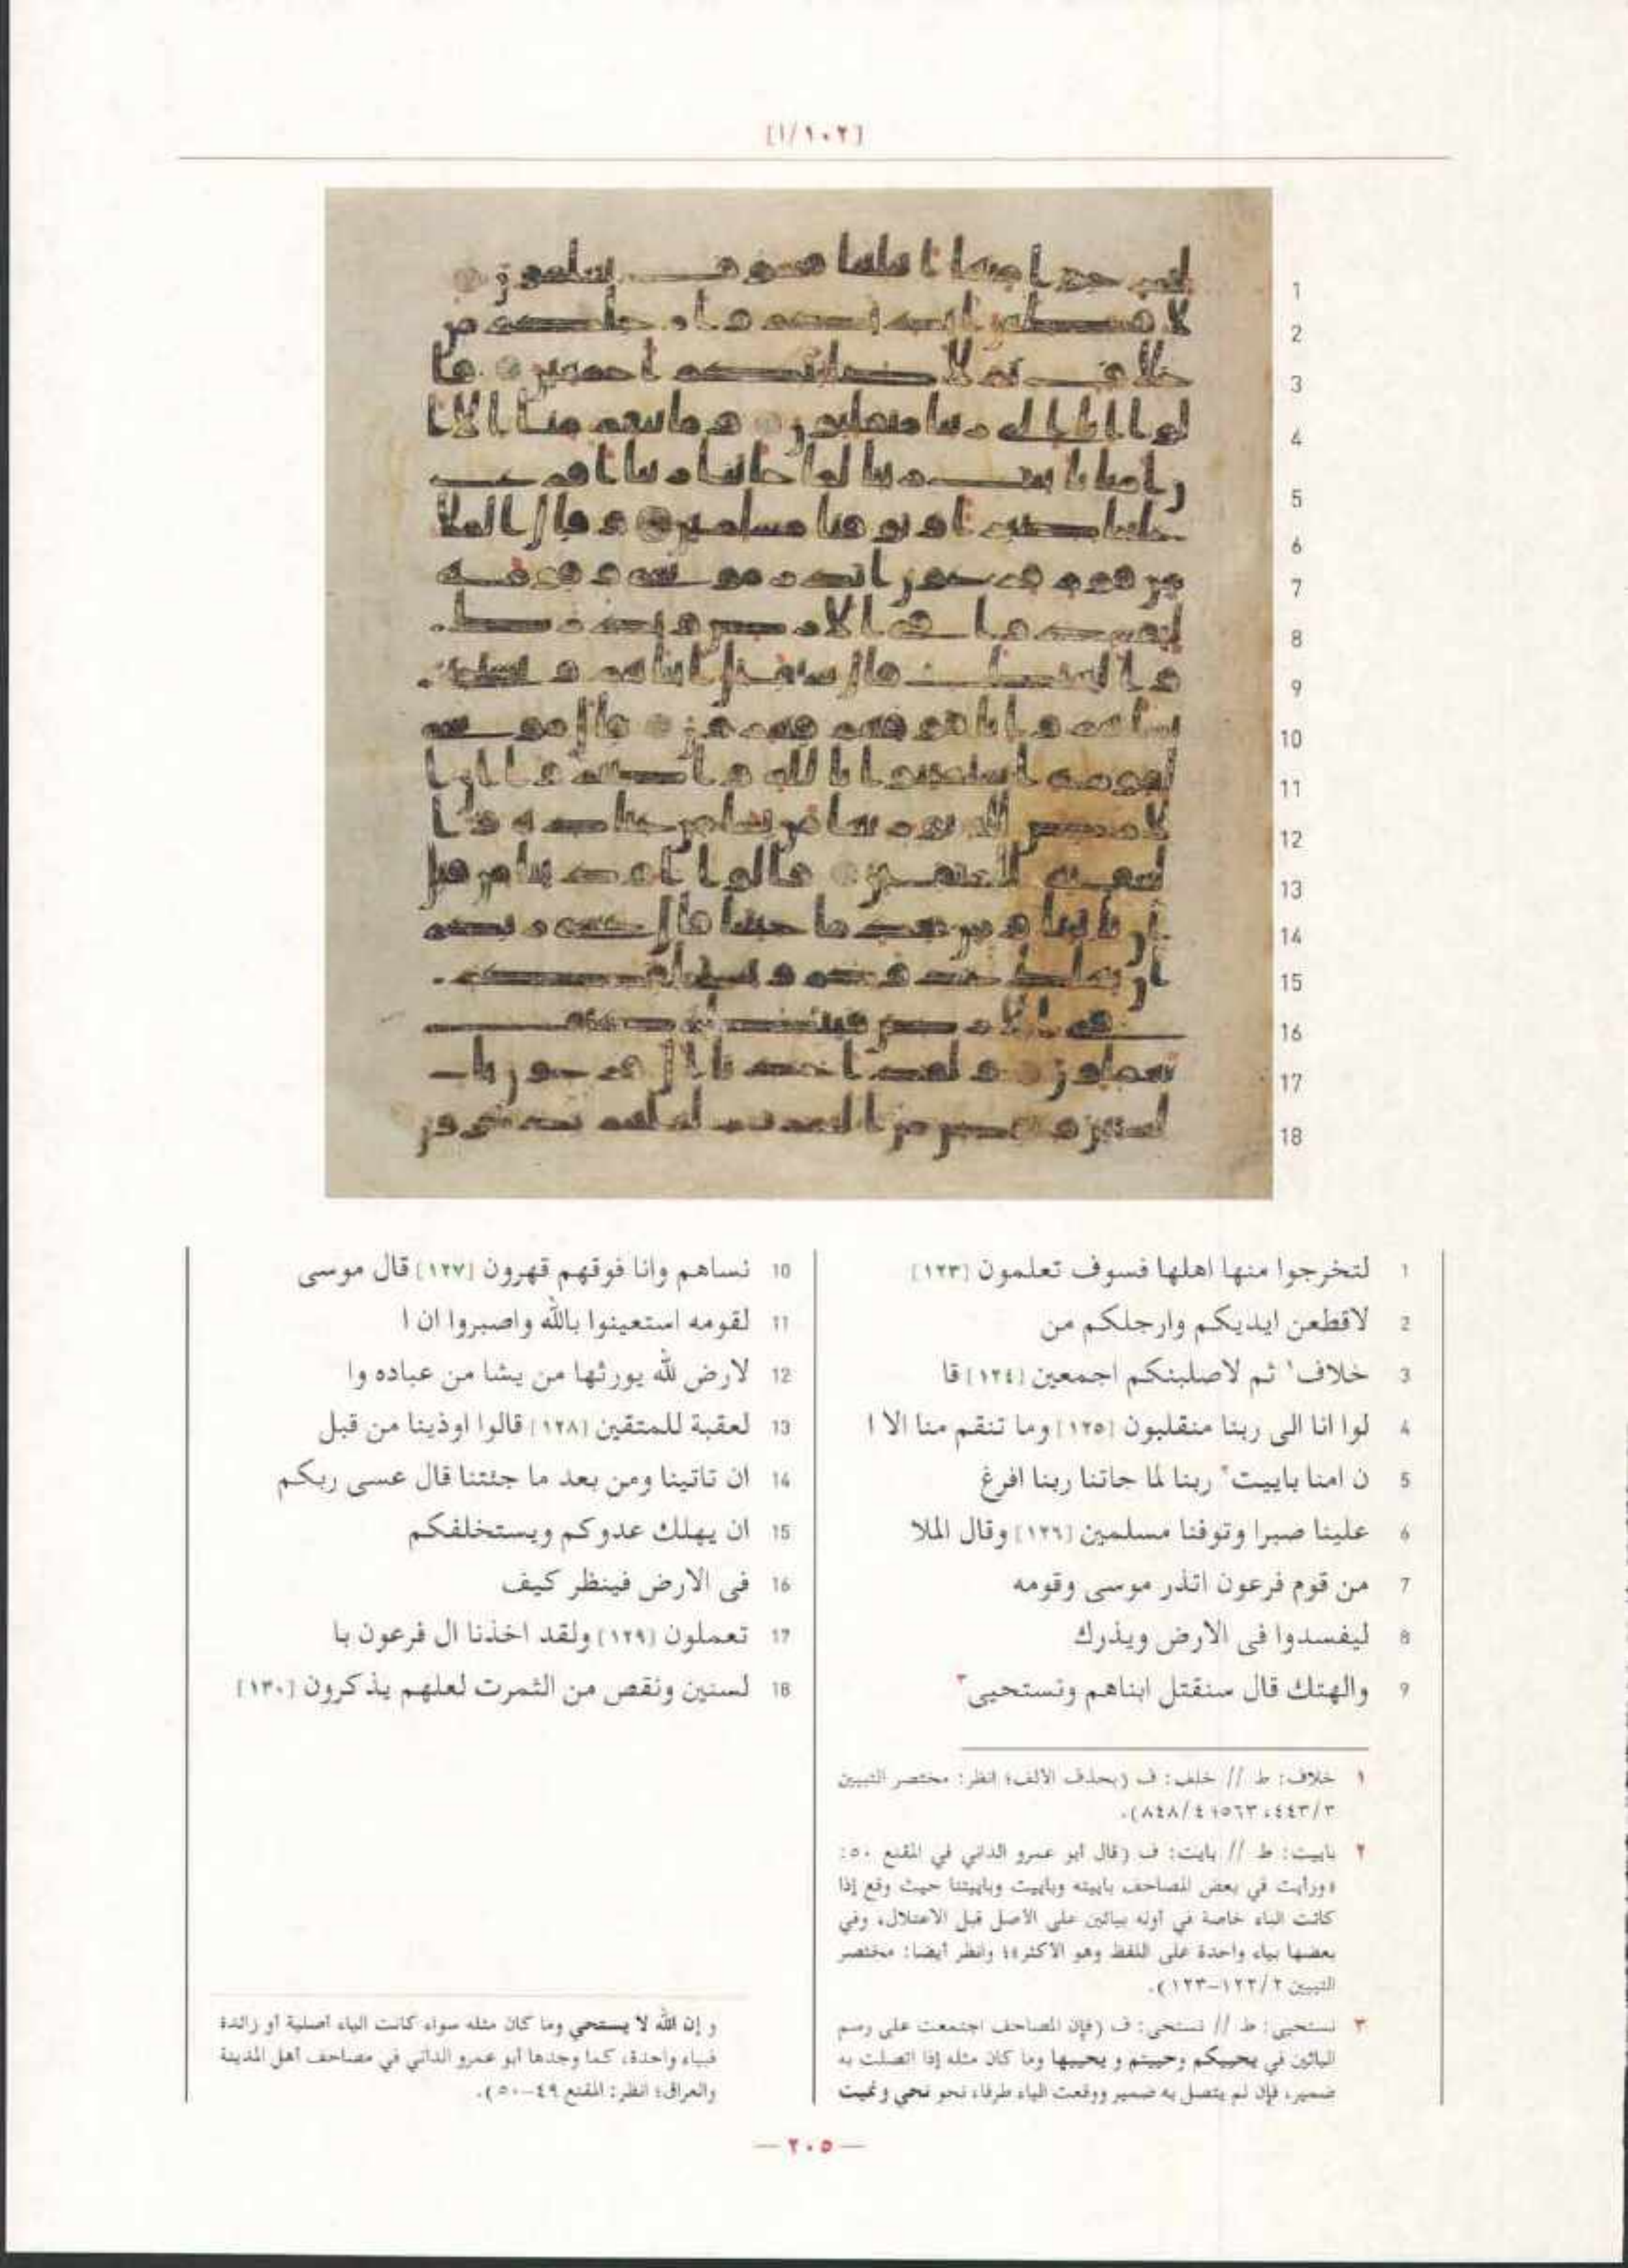 [١٠٢/ا]
1 لتخرجوا منها اهلها فسوف تعلمون [١٢٣]
2 لاقطعن ايديكم وارجلكم من
3 خلاف١ ثم لاصلبنكم اجمعين [١٢٤] قا
4 لوا انا الى ربنا منقلبون [١٢٥] وما تنقم منا الا ا
5 ن امنا باييت٢ ربنا لما جاتنا ربنا افرغ
6 علينا صبرا وتوفنا مسلمين [١٢٦] وقال الملا
7 من قوم فرعون اتذر موسى وقومه
8 ليفسدوا فى الارض ويذرك
9 والهتك قال سنقتل ابناهم ونستحيى٣
10 نساهم وانا فوقهم قهرون [١٢٧] قال موسى
11 لقومه استعينوا بالله واصبروا ان ا
12 لارض لله يورثها من يشا من عباده وا
13 لعقبة للمتقين [١٢٨] قالوا اوذينا من قبل
14 ان تاتينا ومن بعد ما جئتنا قال عسى ربكم
15 ان يهلك عدوكم ويستخلفكم
16 فى الارض فينظر كيف
17 تعملون [١٢٩] ولقد اخذنا ال فرعون با
18 لسنين ونقص من الثمرت لعلهم يذكرون [١٣٠]
١ خلاف: ط // خلف: ف (بحذف الالف؛ انظر: مختصر التبيين
٣/٤٤٣، ٥٦٣؛ ٤/٨٤٨).
٢ باييت: ط // بايت: ف (قال أبو عمرو الداني في المقنع ٥٠:
«ورأيت في بعض المصاحف باييته وباييت وباييتنا حيث وقع إذا
كانت الباء خاصة في أوله بيائين على الأصل قبل الاعتلال، وفي
بعضها بياء واحدة على اللفظ وهو الأكثر»؛ وانظر أيضا: مختصر
التبيين ٢/١٢٢-١٢٣).
٣ نستحيى: ط // نستحى: ف (فإن المصاحف اجتمعت على رسم
اليائين في يحييكم وحييتم و يحييها وما كان مثله إذا اتصلت به
ضمير، فإن لم يتصل به ضمير ووقعت الياء طرفا، نحو نحي ونميت
و إن الله لا يستحي وما كان مثله سواء كانت الياء أصلية أو زائدة
فبياء واحدة، كما وجدها أبو عمرو الداني في مصاحف أهل المدينة
والعراق؛ انظر: المقنع ٤٩-٥٠).
— ٢٠٥ —